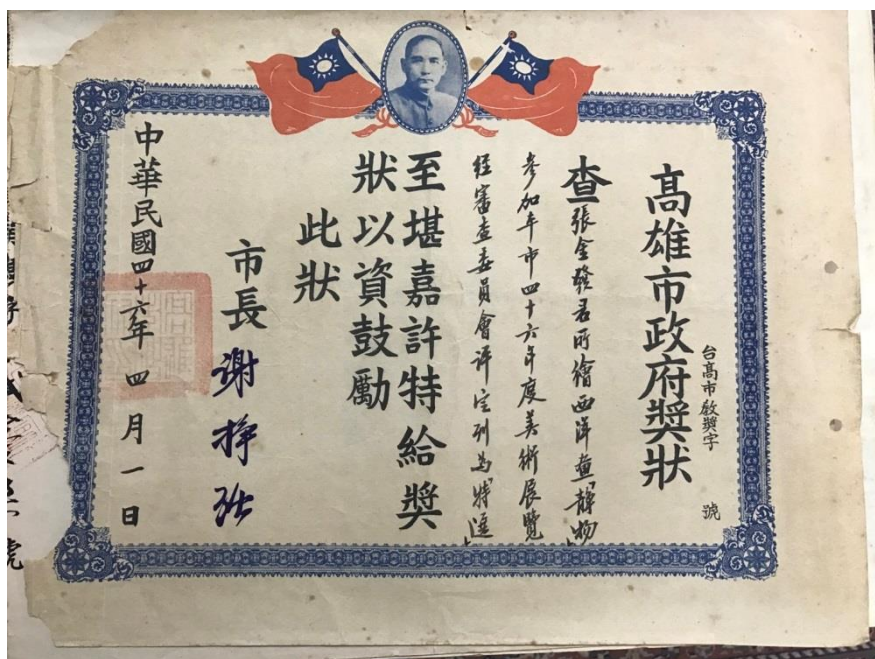 高雄市政府獎狀
台高市啟獎字 號
查張金發君所繪西洋畫「靜物」
參加本市四十六年度美術展覽
經審查委員會評定列為「特選」
至堪嘉許特給獎
狀以資鼓勵
此狀
市長謝掙強
中華民國四十六年四月一日
號